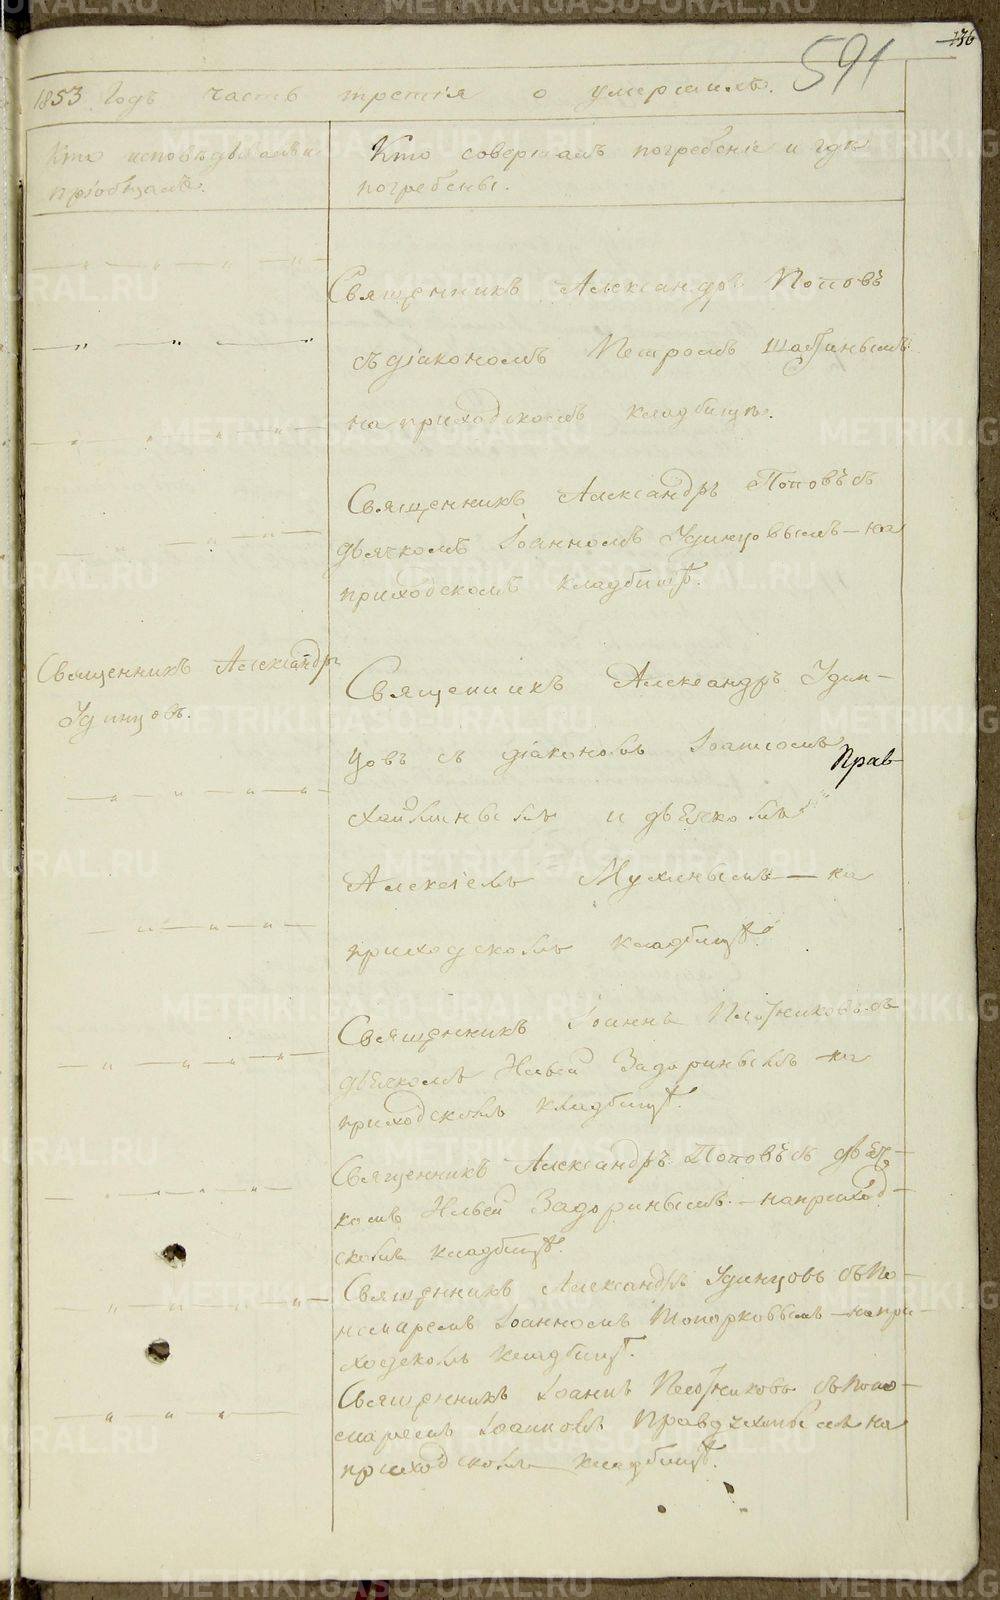 136
591
1853 Годъ часть третія о умершихъ.
Кто исповѣдывалъ и
пріобщалъ.
Кто совершалъ погребеніе и гдѣ
погребены.
Священникъ Александръ Поповъ
съ діакономъ Петромъ
на приходскомъ кладбищѣ.
Священникъ Александръ Поповъ съ
дьячкомъ Іоанномъ Удинцовымъ – на
приходскомъ кладбищѣ.
Священникъ Александръ
Удинцовъ.
Священникъ Александръ Удин-
цовъ съ діакономъ Іоанномъ Прав-
и дьячкомъ
Алексіемъ Мухинымъ – на
приходскомъ кладбищѣ.
Священникъ Іоаннъ Плотниковъ съ
дьячкомъ Ильей Задоринымъ – на
приходскомъ кладбищѣ.
Священникъ Александръ Поповъ съ дьяч-
комъ Ильей Задоринымъ – на приход-
скомъ кладбищѣ.
Священникъ Александръ Удинцовъ съ по-
номаремъ Іоанномъ Топорковымъ – на при-
ходскомъ кладбищѣ.
Священникъ Іоаннъ Плотниковъ съ поно-
маремъ Іоанномъ на
приходскомъ кладбищѣ.
METRIKI.GASO-URAL.RU